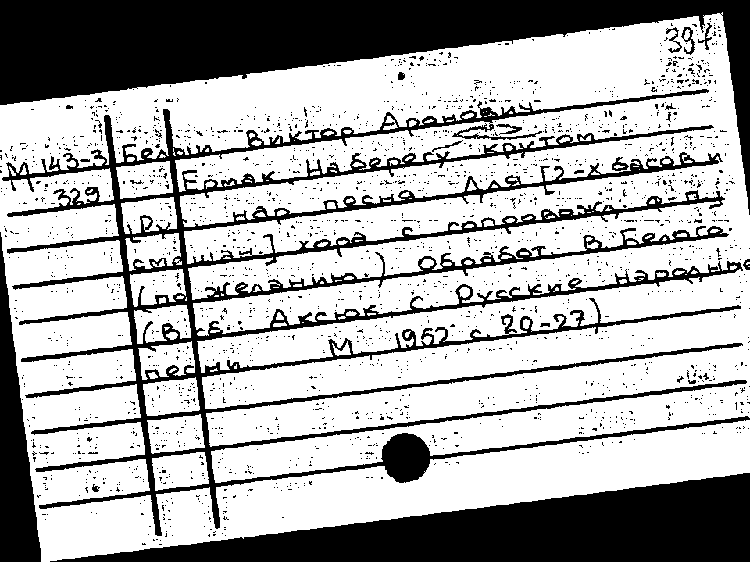 394
М 143-3 Белый, Виктор Аранович
329 Ермак. "На берегу крутом".
[Рус. нар. песня. Для [2-х басов и
смешан.] хора с сопровожд. ф-п.]
(по желанию.) Обработ. В. Белого.
(В сб.: Аксюк, С. Русские народные
песни М, 1952 с. 20-27)